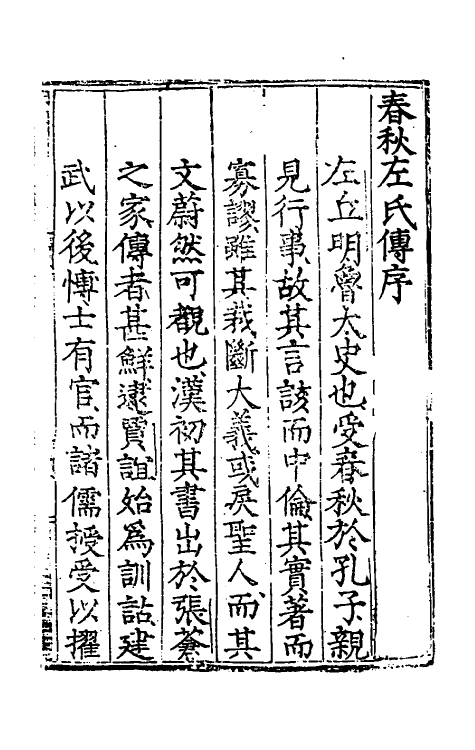 春秋左氏傳序
左丘明魯太史也受春秋於孔子親
見行事故其言該而中倫其實著而
寡謬雖其裁斷大義或戾聖人而其
文蔚然可觀也漢初其書出於張蒼
之家傳者甚鮮逮賈誼始爲訓詁建
武以後愽士有官而諸儒授受以擢